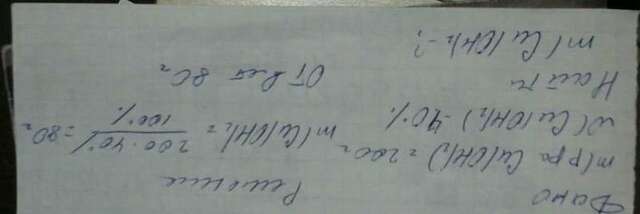 Дано
Решение
m(р ра Cu(OH)₂) = 200г
m(Cu(OH)₂ = 200·40% / 100% = 80г
w(Cu(OH)₂) - 40%
Найти
Ответ 80г
m(Cu(OH)₂ - ?